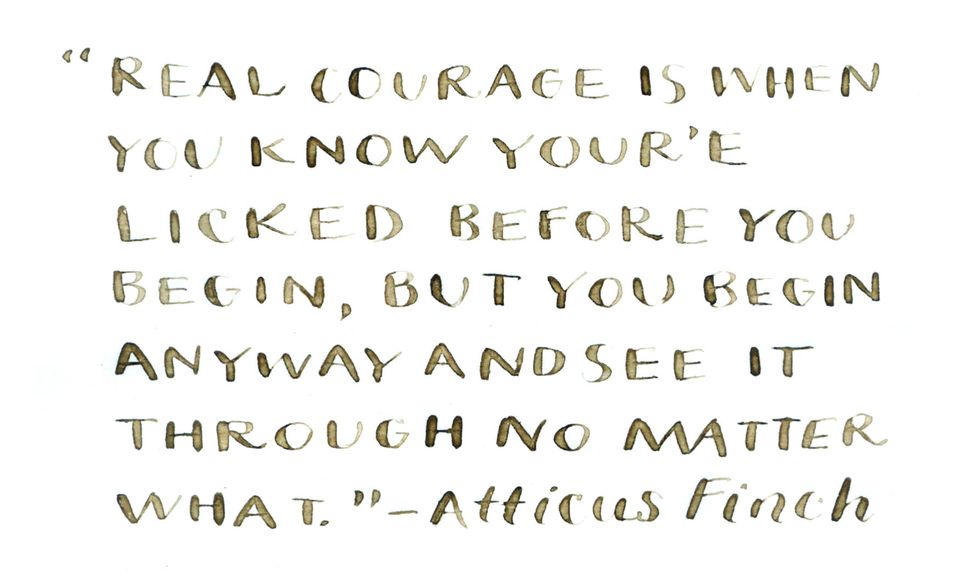 “REAL COURAGE IS WHEN
YOU KNOW YOUR’E
LICKED BEFORE YOU
BEGIN, BUT YOU BEGIN
ANYWAY AND SEE IT
THROUGH NO MATTER
WHAT.” – Atticus Finch